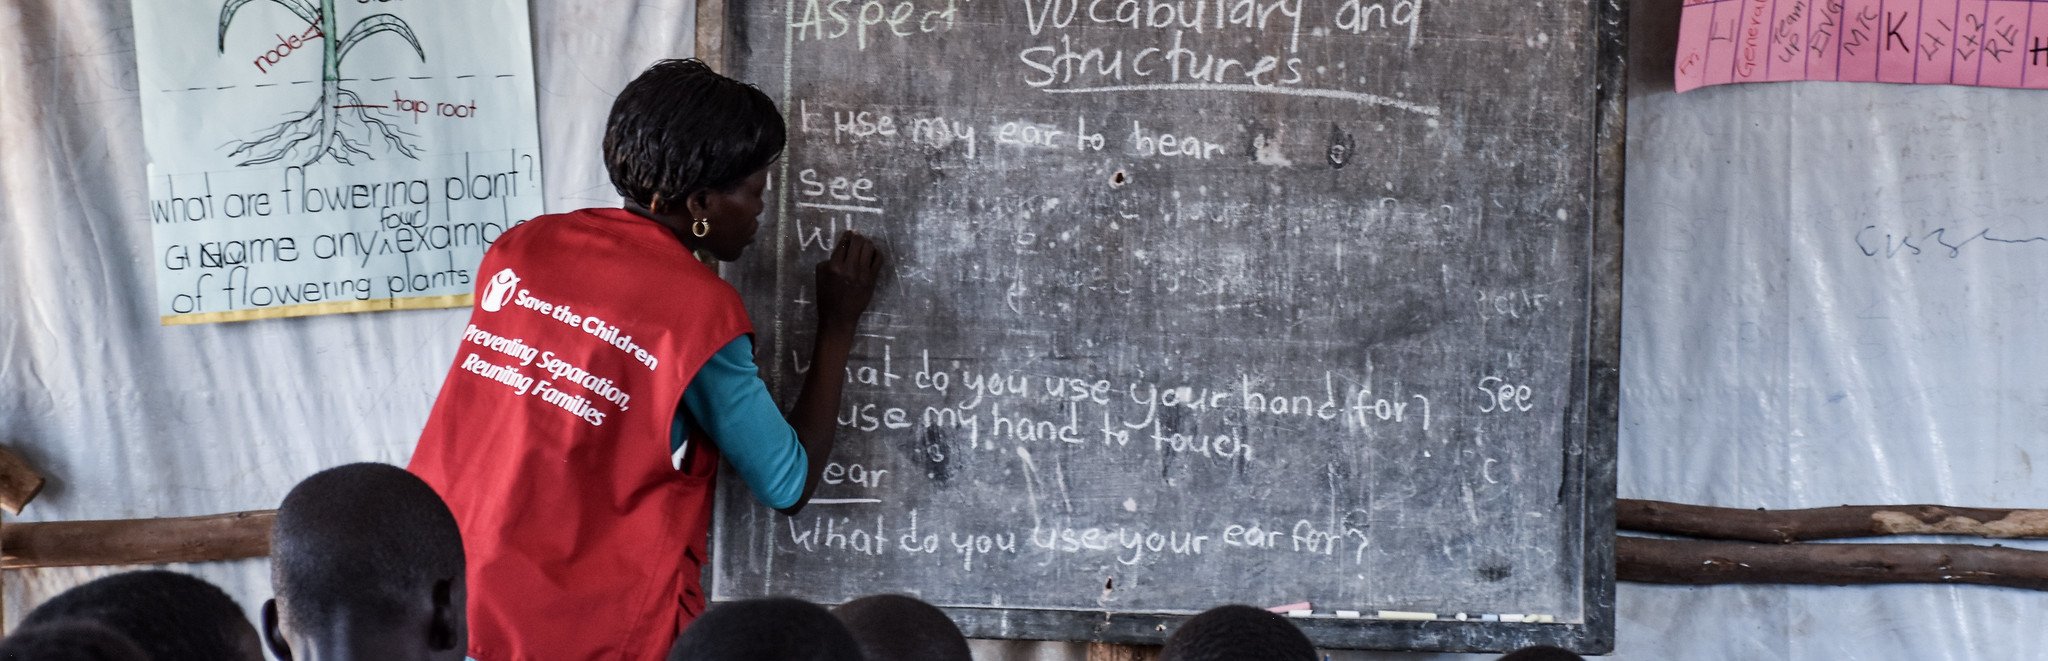 node
tap root
what are flowering plant?
name any four example
of flowering plants
Save the Children
Preventing Separation,
Reuniting Families
Aspect Vocabulary and
structures
I use my ear to hear
see
W
What do you use your hand for?
use my hand to touch
See
ear
What do you use your ear for?
General
Team
UP
ENG
MTC
K
L+1
L+2
RE
H